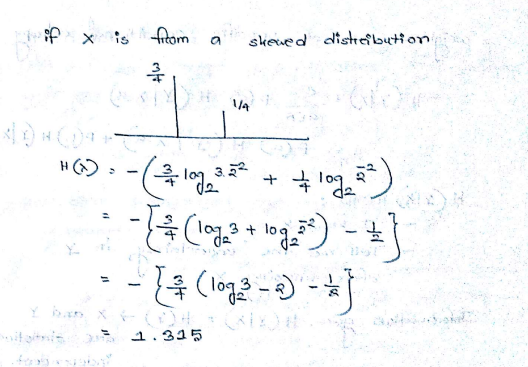 if X is from a skewed distribution
3/4
1/4
H(X) = -(3/4 log₂ 3.2⁻² + 1/4 log₂ 2⁻²)
= -{3/4 (log₂ 3 + log₂ 2⁻²) - 1/2}
= -{3/4 (log₂ 3 - 2) - 1/2}
= 1.315